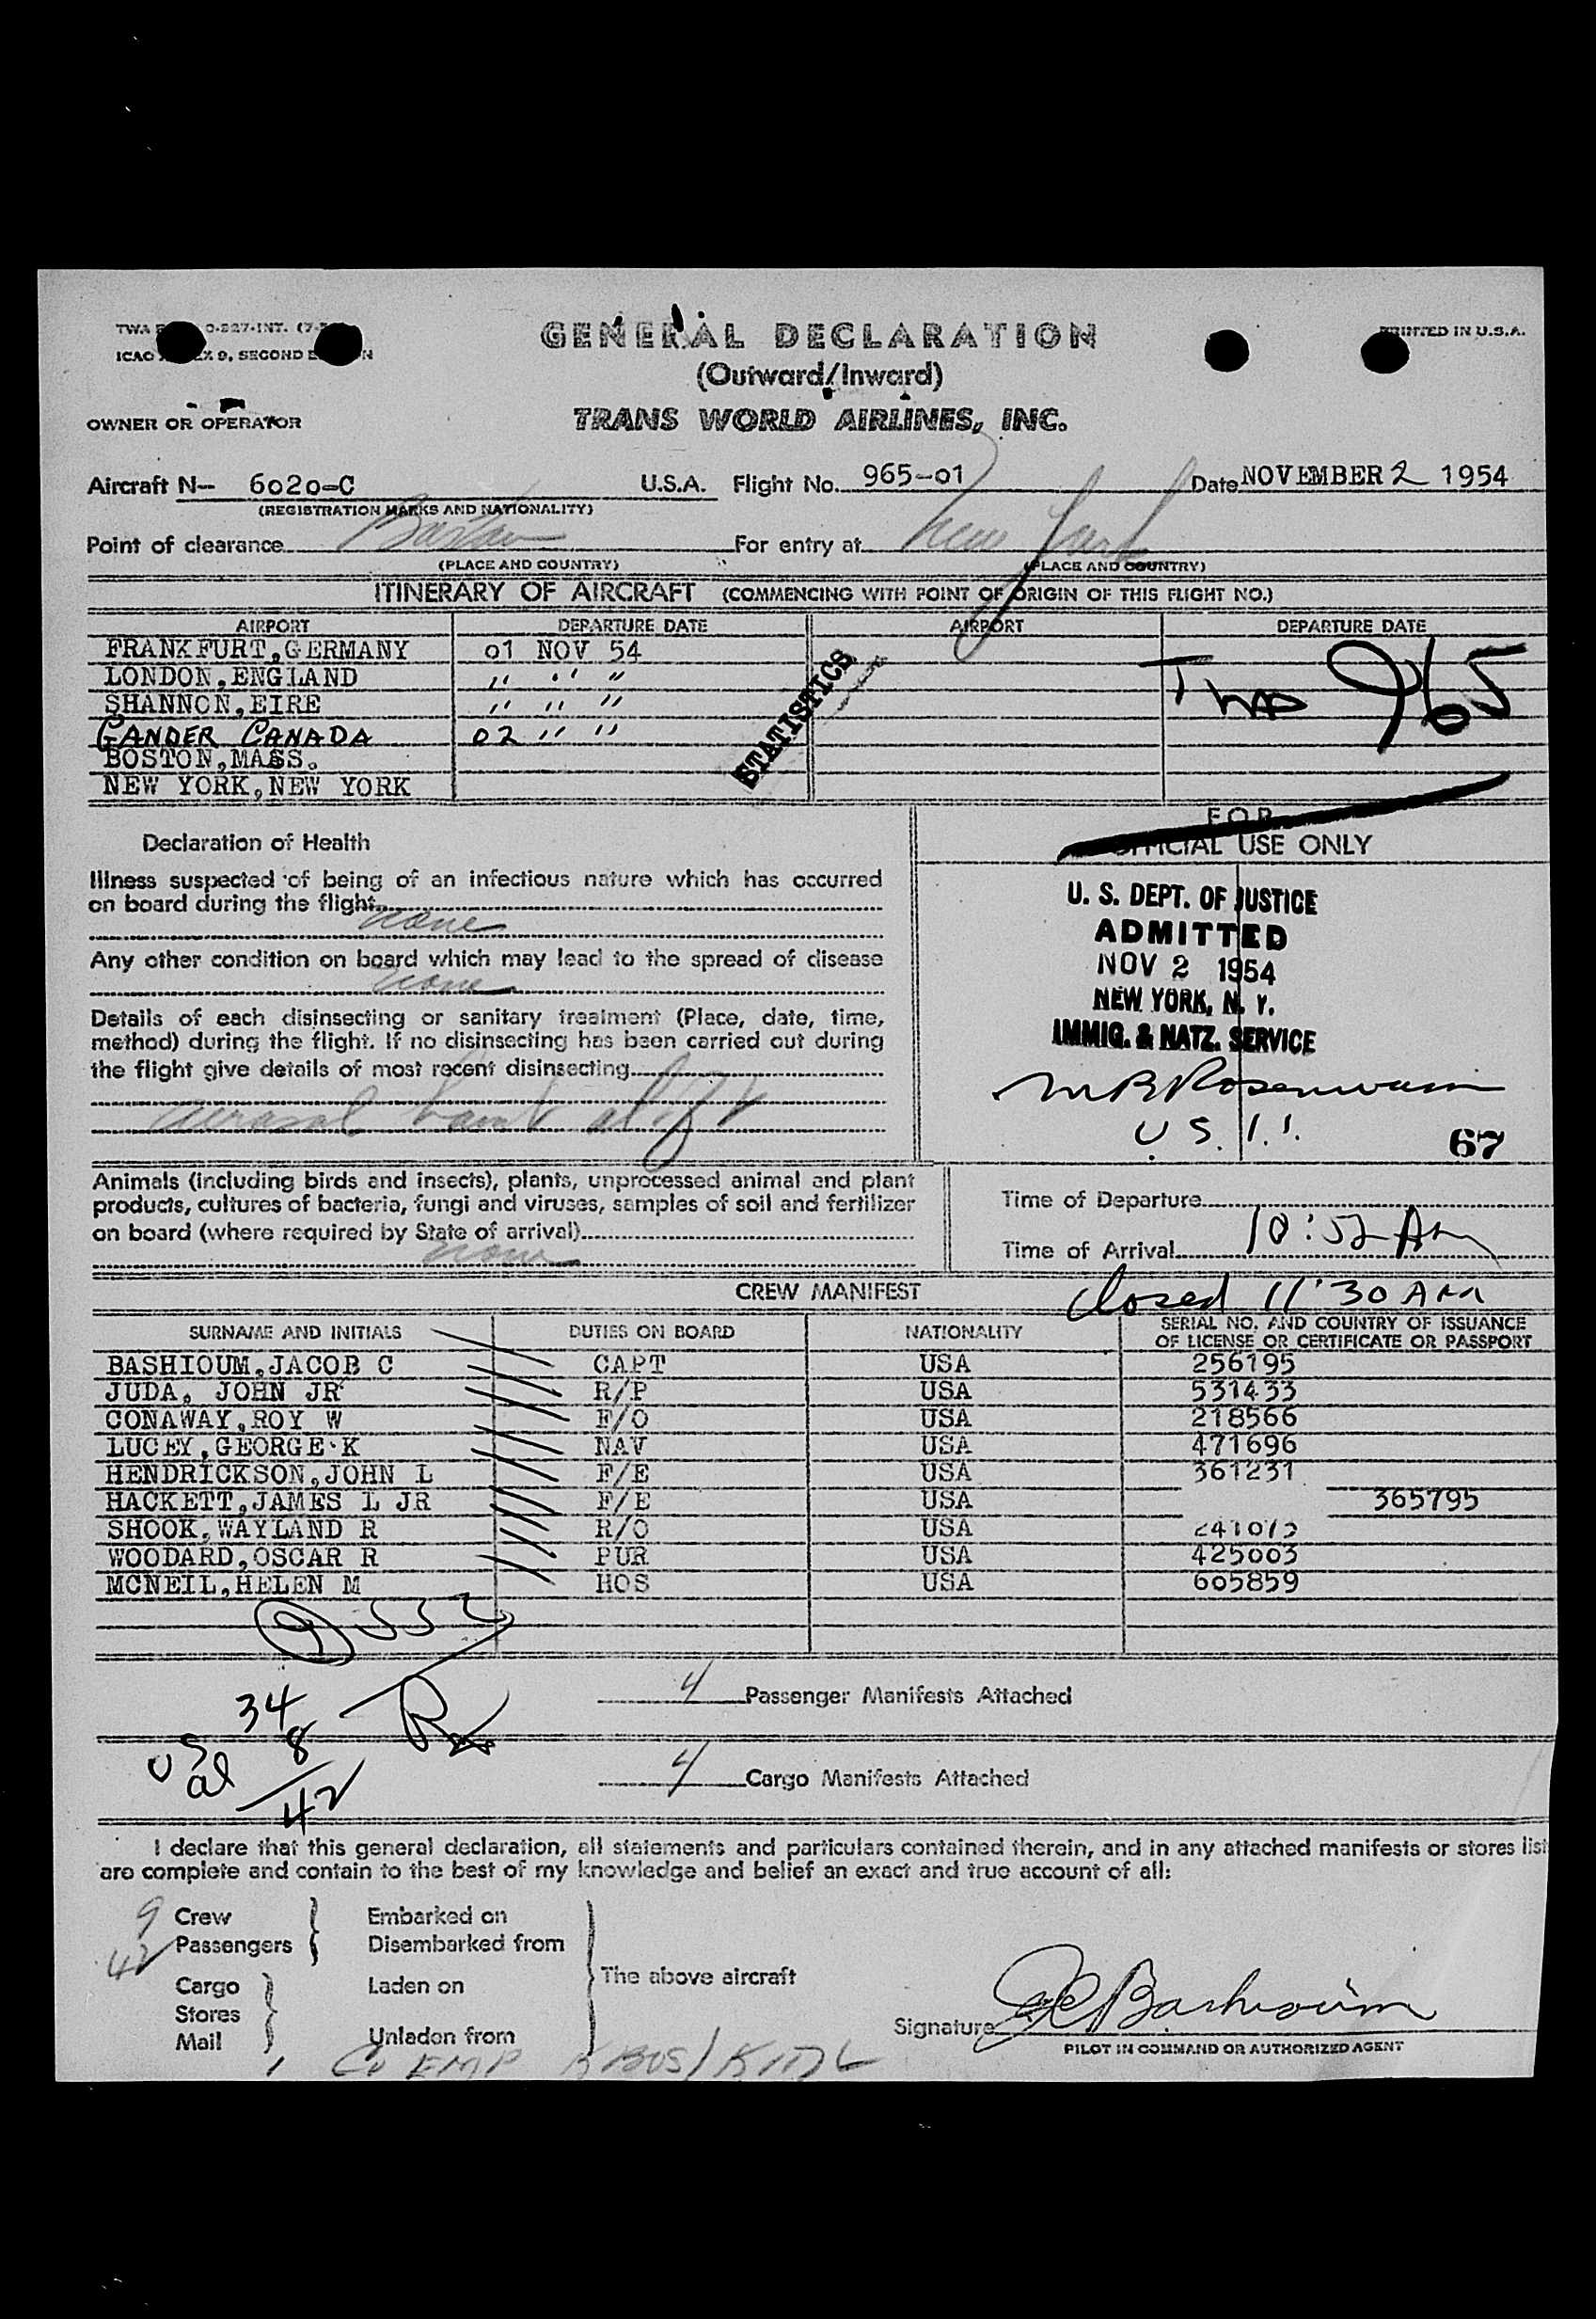 GENERAL DECLARATION
PRINTED IN U.S.A.
(Outward/Inward)
OWNER OR OPERATOR TRANS WORLD AIRLINES, INC.
Aircraft N- 6020-C U.S.A. Flight No. 965-01 Date NOVEMBER 2 1954
(REGISTRATION MARKS AND NATIONALITY)
Point of clearance Boston For entry at New York
(PLACE AND COUNTRY) (PLACE AND COUNTRY)
ITINERARY OF AIRCRAFT (COMMENCING WITH POINT OF ORIGIN OF THIS FLIGHT NO.)
AIRPORT DEPARTURE DATE AIRPORT DEPARTURE DATE
FRANKFURT, GERMANY 01 NOV 54
LONDON, ENGLAND " " "
SHANNON, EIRE " " "
GANDER CANADA 02 " "
BOSTON, MASS.
NEW YORK, NEW YORK
STATISTICS
TWA 965
Declaration of Health
Illness suspected of being of an infectious nature which has occurred
on board during the flight
none
Any other condition on board which may lead to the spread of disease
none
Details of each disinsecting or sanitary treatment (Place, date, time,
method) during the flight. If no disinsecting has been carried out during
the flight give details of most recent disinsecting
aerosol
FOR
OFFICIAL USE ONLY
U. S. DEPT. OF JUSTICE
ADMITTED
NOV 2 1954
NEW YORK, N. Y.
IMMIG. & NATZ. SERVICE
U S. I. I.
67
Animals (including birds and insects), plants, unprocessed animal and plant
products, cultures of bacteria, fungi and viruses, samples of soil and fertilizer
on board (where required by State of arrival)
none
Time of Departure
Time of Arrival 10:52 AM
closed 11:30 AM
CREW MANIFEST
SURNAME AND INITIALS DUTIES ON BOARD NATIONALITY SERIAL NO. AND COUNTRY OF ISSUANCE
OF LICENSE OR CERTIFICATE OR PASSPORT
BASHIOUM, JACOB C CAPT USA 256195
JUDA, JOHN JR R/P USA 531433
CONAWAY, ROY W F/O USA 218566
LUCEY, GEORGE K NAV USA 471696
HENDRICKSON, JOHN L F/E USA 361231
HACKETT, JAMES L JR F/E USA 365795
SHOOK, WAYLAND R R/O USA
WOODARD, OSCAR R PUR USA 425003
MCNEIL, HELEN M HOS USA 605859
9
4 Passenger Manifests Attached
US 34
al 8
42
4 Cargo Manifests Attached
I declare that this general declaration, all statements and particulars contained therein, and in any attached manifests or stores list
are complete and contain to the best of my knowledge and belief an exact and true account of all:
9 Crew Embarked on
42 Passengers Disembarked from
The above aircraft
Cargo Laden on
Stores
Mail Unladen from
Signature J C Bashioum
PILOT IN COMMAND OR AUTHORIZED AGENT
1 Co EMP